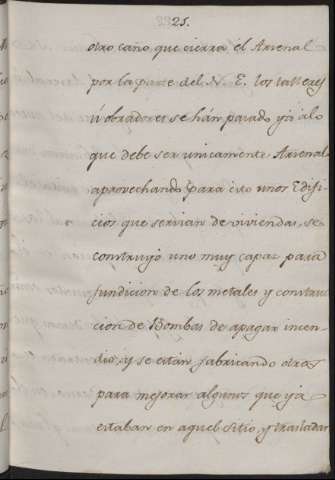 25.
otro caño que cierra el Arsenal
por la parte del N. E. los talleres
ú obradores se hán pasado yá alo
que debe ser unicamente Arsenal
aprovechando para esto unos Edifi
cios que servian de viviendas, se
construyó uno muy capaz para
fundicion de los metales y construc
cion de Bombas de apagar incen
dio, y se están fabricando otras
para mejorar algunos que yá
estaban en aquel sitio, y trasladar